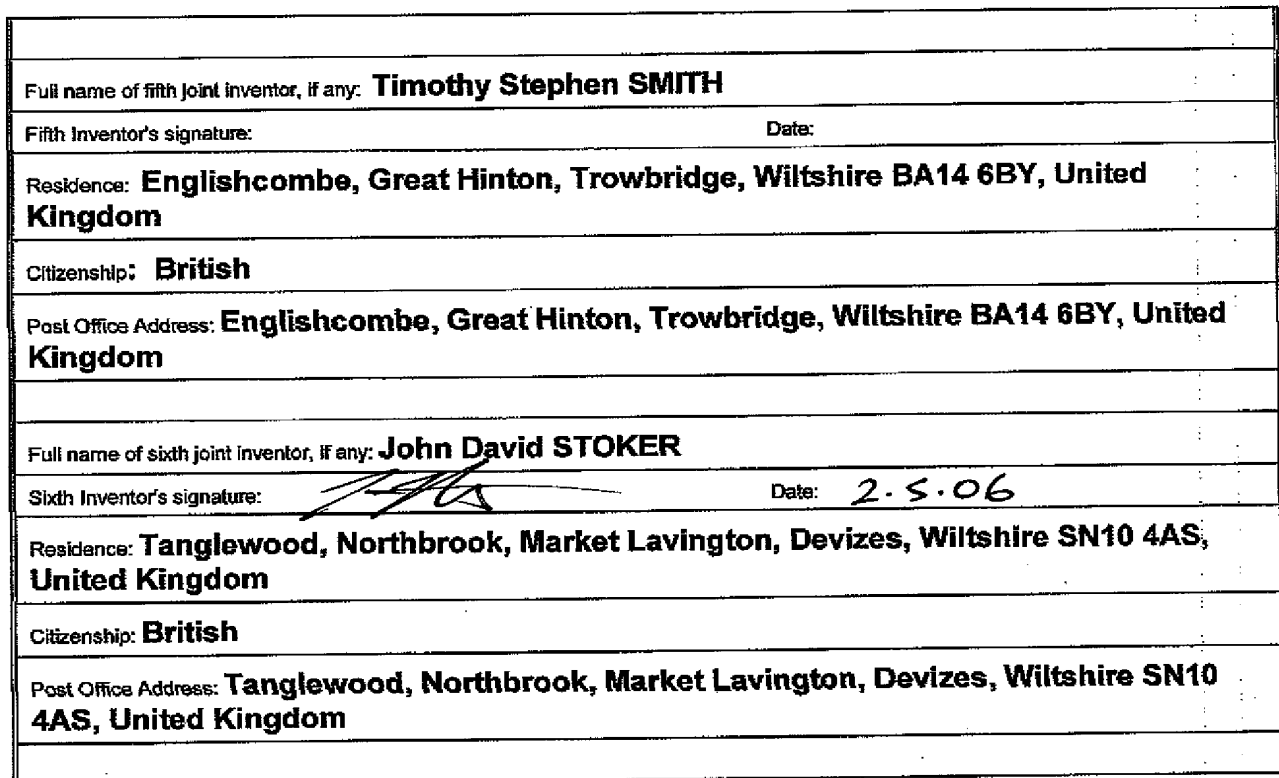 Full name of fifth joint inventor, if any: Timothy Stephen SMITH
Fifth Inventor's signature: Date:
Residence: Englishcombe, Great Hinton, Trowbridge, Wiltshire BA14 6BY, United
Kingdom
Citizenship: British
Post Office Address: Englishcombe, Great Hinton, Trowbridge, Wiltshire BA14 6BY, United
Kingdom
Full name of sixth joint inventor, if any: John David STOKER
Sixth Inventor's signature: Date: 2.5.06
Residence: Tanglewood, Northbrook, Market Lavington, Devizes, Wiltshire SN10 4AS,
United Kingdom
Citizenship: British
Post Office Address: Tanglewood, Northbrook, Market Lavington, Devizes, Wiltshire SN10
4AS, United Kingdom